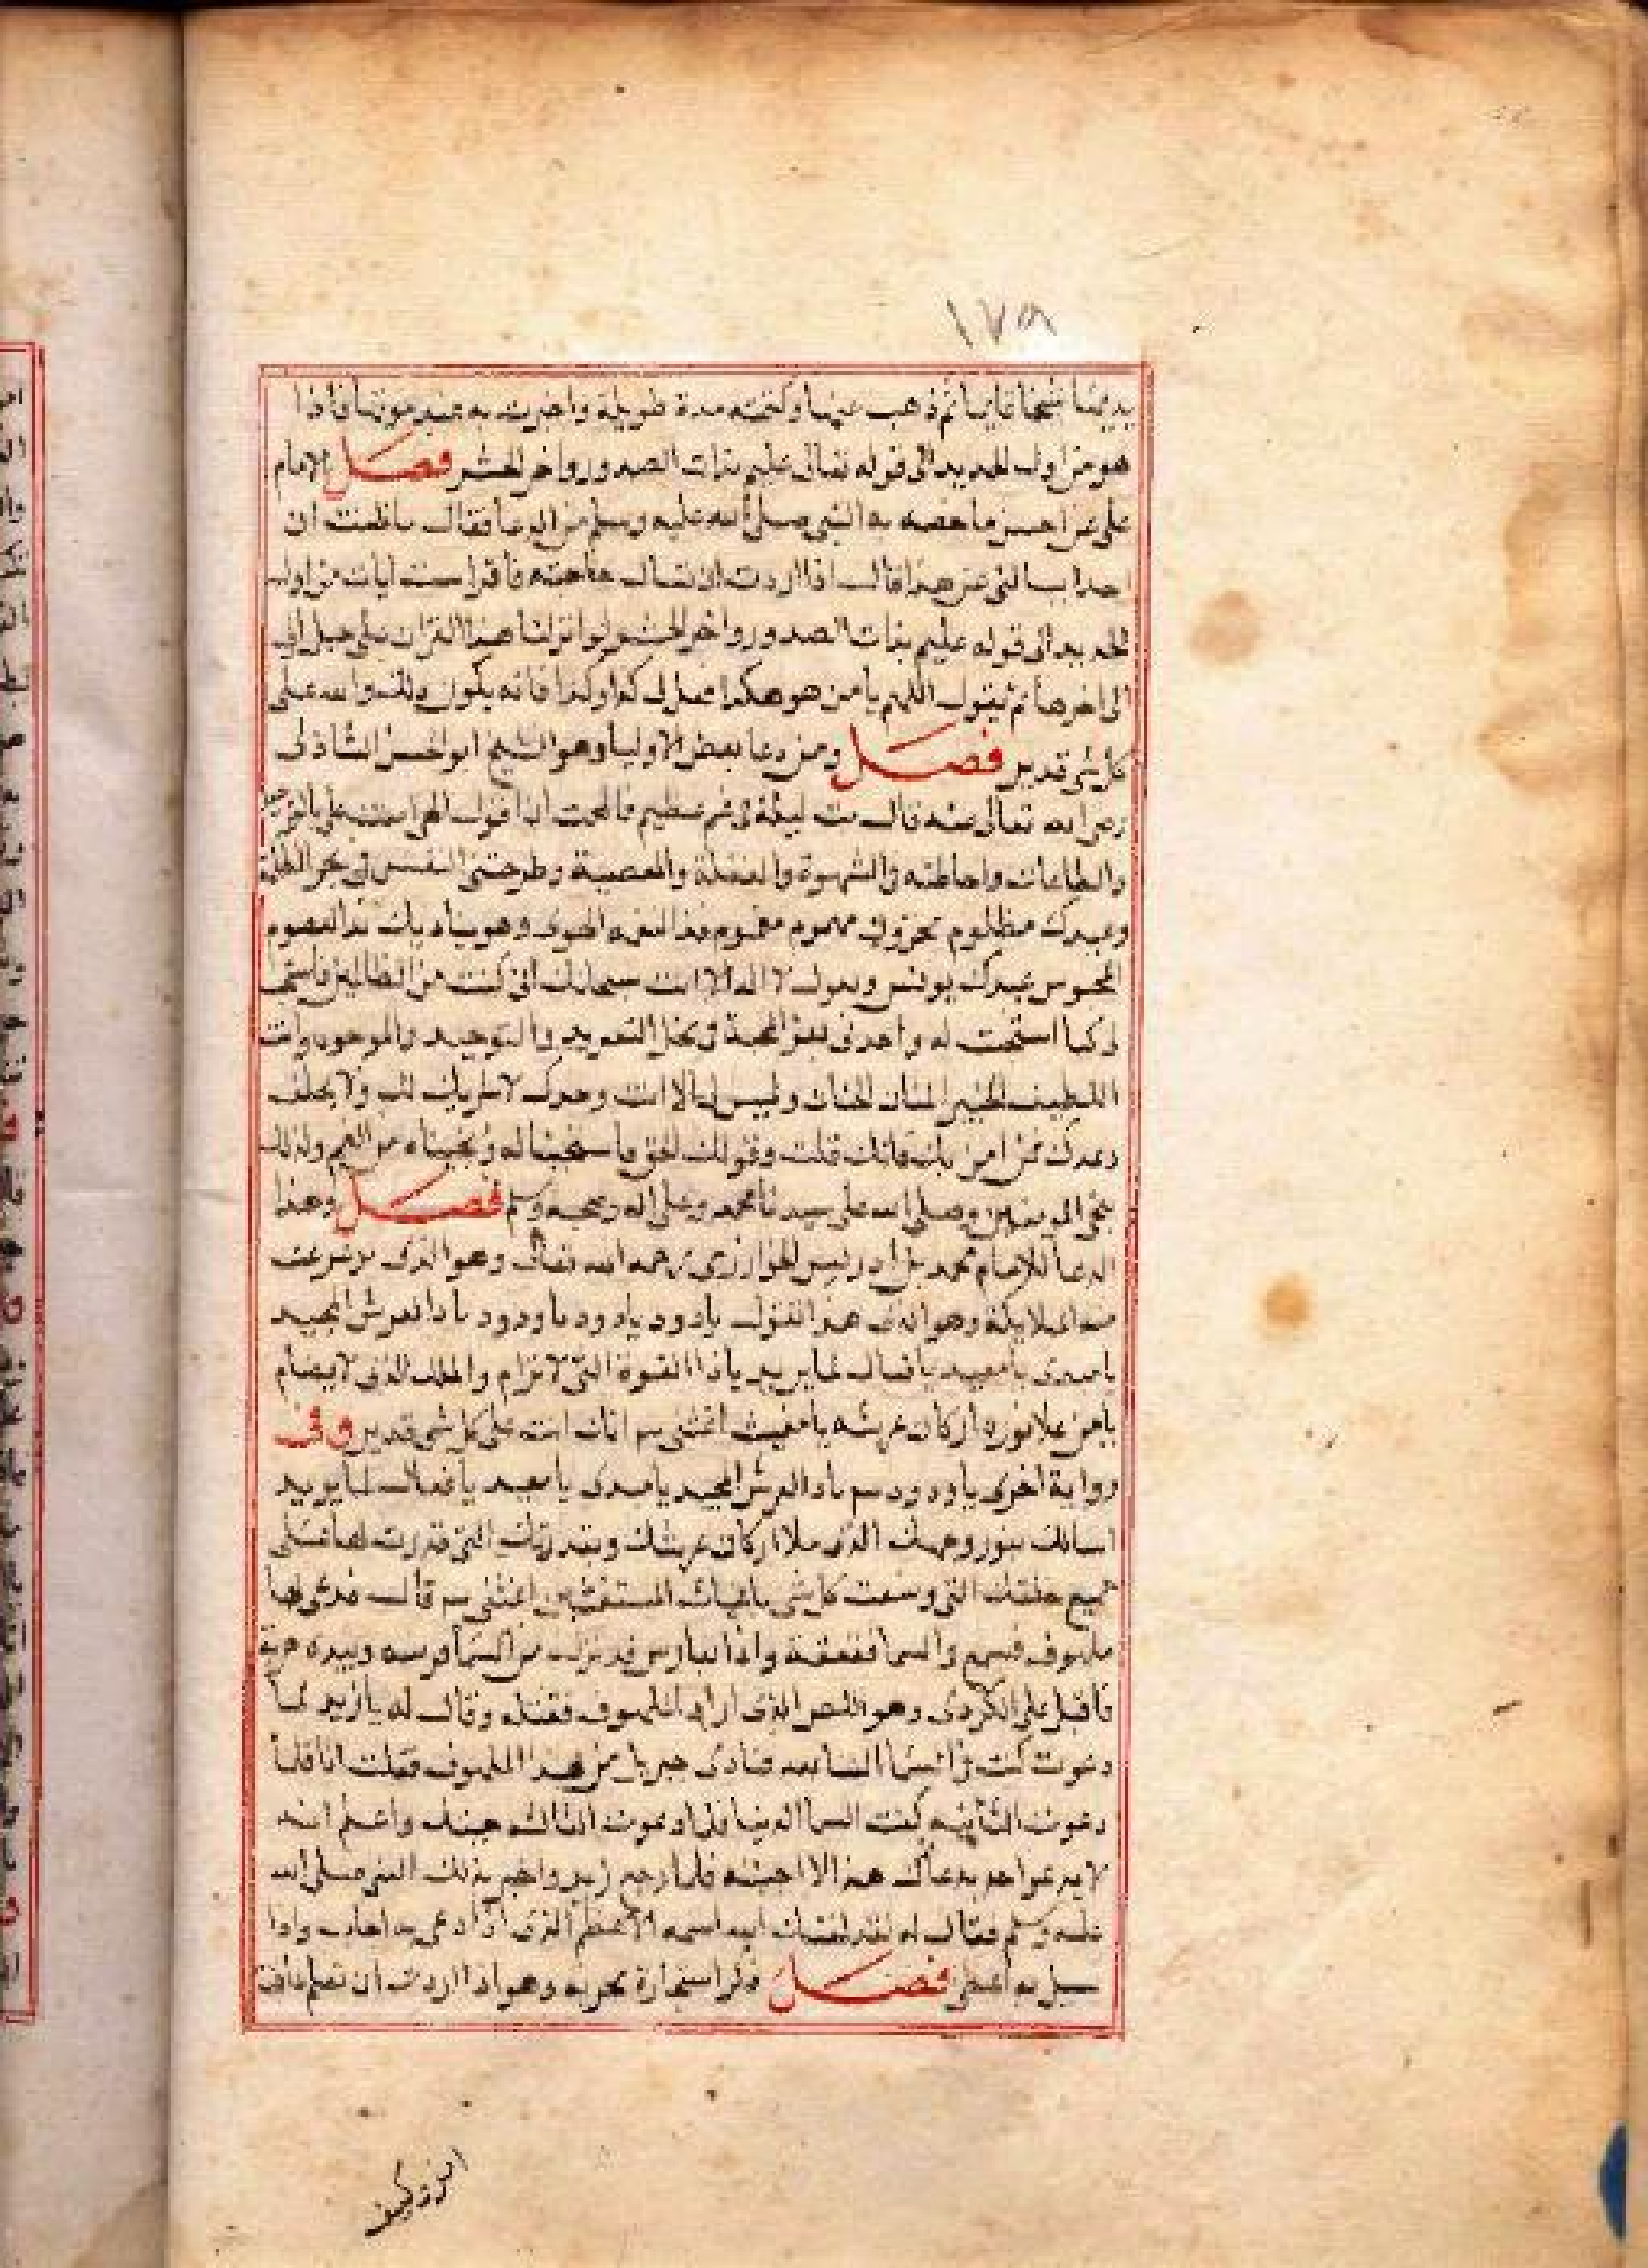 ١٧٩
ثم ذهب عنها وكتمته مدة طويلة واخبرت به عند موتها فاذا
هو من اول الحديد الى قوله تعالى عليم بذات الصدور واخر الحشر فصل الامام
على عن احسن ما خصه به النبى صلى الله عليه وسلم من الدعا فقال ما ظننت ان
احدا يسالنى عن هذا قال اذا اردت ان تسال حاجته فاقرا ست ايات من اول
الحديد الى قوله عليم بذات الصدور واخر الحشر لو انزلنا هذا القران على جبل الى
الى اخرها ثم تقول اللهم يا من هو هكذا افعل لى كذا وكذا فانه يكون ذلك والله على
كل شى قدير فصل ومن دعا بعض الاوليا وهو الشيخ ابو الحسن الشاذلى
رضى الله تعالى عنه قال بت ليلة فى غم عظيم فالهمت ان اقول الهى مننت على
والطاعات واحاطته فى الشهوة والغفلة والمعصية وطرحتنى النفس فى بحر الظلمة
وعبدك مظلوم محزون مهموم مغموم قد التقمه الهوى وهو يناديك ندا المعصوم
المحبوس عبدك يونس ويقول لا اله الا انت سبحانك انى كنت من الظالمين فاستجب
لى كما استجبت له و المحبة فى محل التفريد والتوحيد وانت
اللطيف الخبير المنان الحنان وليس لى الا انت وحدك لا شريك لك ولا يخلف
وعدك من امن بك فانك قلت وقولك الحق فاستجبنا له ونجيناه من الغم وكذلك
ننجى المومنين وصلى الله على سيدنا محمد وعلى اله وصحبه وسلم فصل وهذا
الدعا للامام محمد بن ادريس الخوارزمى رحمه الله تعالى وهو الذى
منه الملايكة وهو ان هذا القول يا ودود يا ودود يا ودود يا ذا العرش المجيد
يا مبدى يا معيد يا فعال لما يريد يا ذا القوة التى لا ترام والملك الذى لا يضام
يا من علا نوره اركان عرشه يا مغيث اغثنى ٣ انك انت على كل شى قدير وفى
رواية اخرى يا ودود ٣ يا ذا العرش المجيد يا مبدى يا معيد يا فعال لما يريد
اسالك بنور وجهك الذى ملا اركان عرشك وبقدرتك التى قدرت بها على
جميع خلقك التى وسعت كل شى يا غياث المستغيثين اغثنى ٣ قال
ملهوف والسما قعقعة واذا بفارس قد نزل من السما وبيده حربة
فاقبل على الكردى وهو اللص الذى اراد الملهوف فقتله وقال له يا زيد لما
دعوت كنت فى السما السابعة فنادى جبريل من لهذا الملهوف فقلت انا فلما
دعوت الثانية كنت السما الدنيا فلما دعوت الثالثة جيتك واعلم انه
لا يدعو احد بدعاك هذا الا اجبته فلما رجع زيد واخبر بذلك النبى صلى الله
عليه وسلم فقال له لقد لقنك الله اسمه الاعظم الذى اذا دعى به اجاب واذا
سيل به اعطى فصل استخارة مجربه وهو اذا اردت ان تعلم